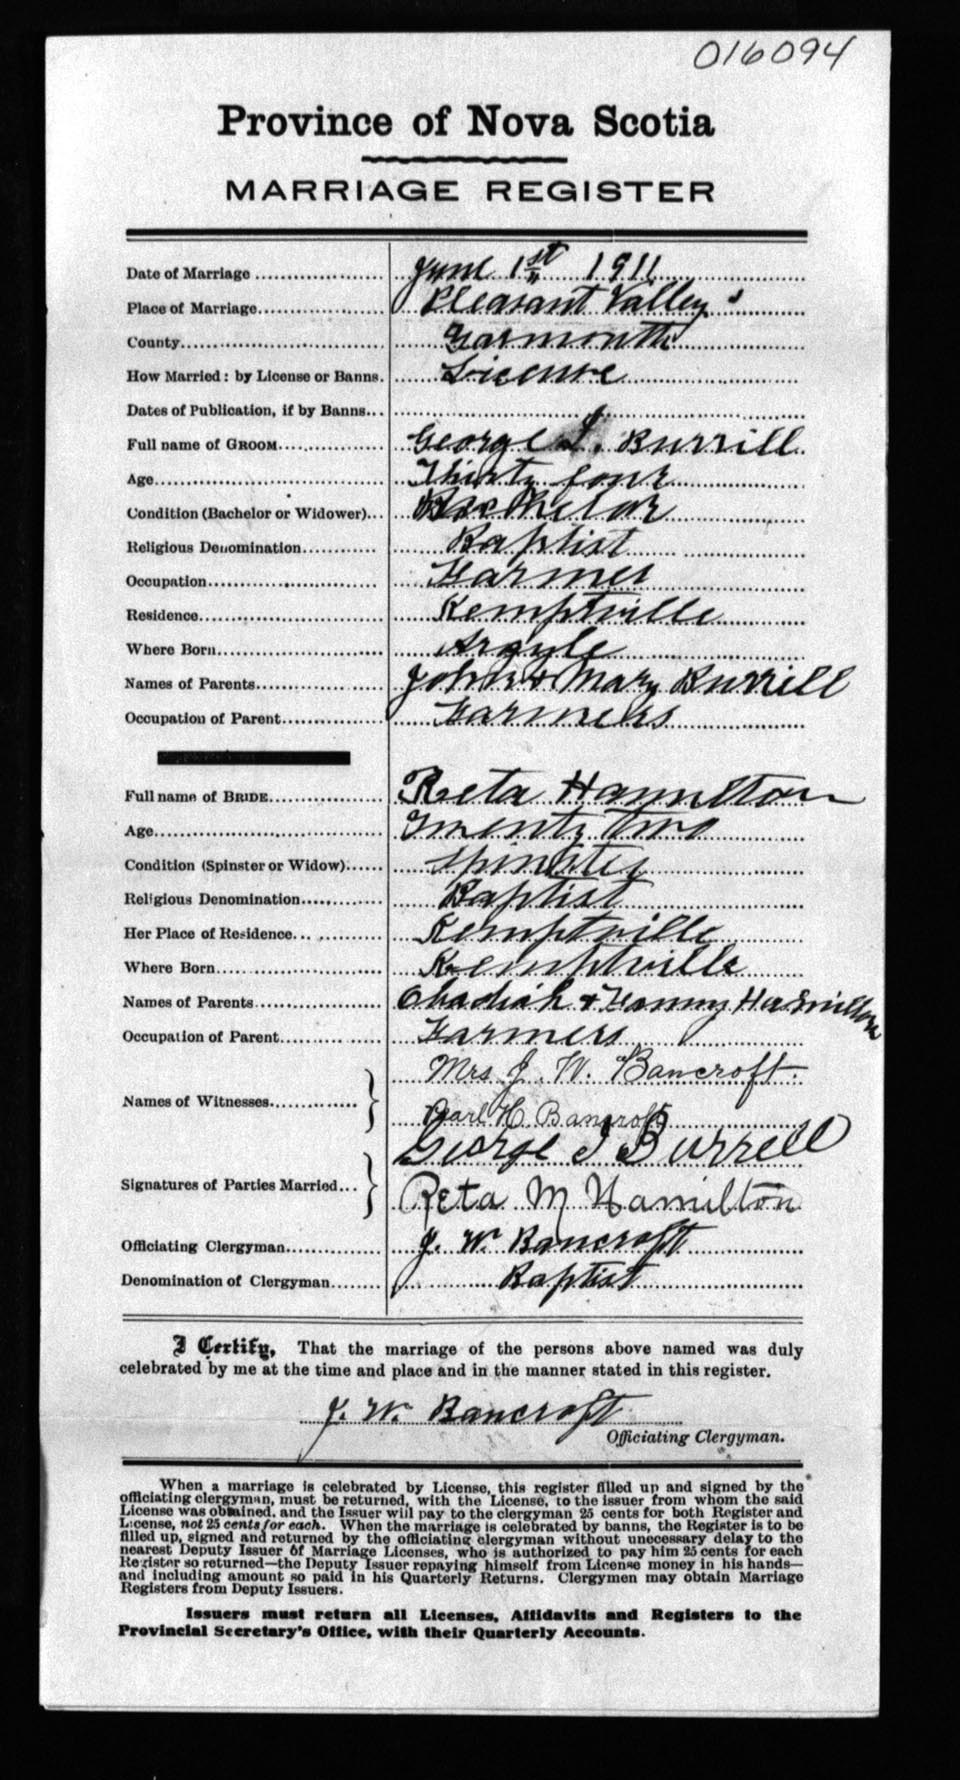 016094
Province of Nova Scotia
MARRIAGE REGISTER
Date of Marriage June 1st 1911
Place of Marriage Pleasant Valley
County Yarmouth
How Married: by License or Banns. License
Dates of Publication, if by Banns
Full name of GROOM George I. Burrill
Age Thirty four
Condition (Bachelor or Widower) Bachelor
Religious Denomination Baptist
Occupation Farmer
Residence Kemptville
Where Born Argyle
Names of Parents John & Mary Burrill
Occupation of Parent Farmers
Full name of BRIDE Reta Hamilton
Age Twenty two
Condition (Spinster or Widow) Spinster
Religious Denomination Baptist
Her Place of Residence Kemptville
Where Born Kemptville
Names of Parents Obadiah & Fanny Hamilton
Occupation of Parent Farmers
Mrs J. W. Bancroft
Names of Witnesses
Carl H. Bancroft
George I Burrell
Signatures of Parties Married
Reta M Hamilton
Officiating Clergyman J. W. Bancroft
Denomination of Clergyman Baptist
I Certify, That the marriage of the persons above named was duly
celebrated by me at the time and place and in the manner stated in this register.
J. W. Bancroft
Officiating Clergyman.
When a marriage is celebrated by License, this register filled up and signed by the
officiating clergyman, must be returned, with the License, to the issuer from whom the said
License was obtained, and the Issuer will pay to the clergyman 25 cents for both Register and
License, not 25 cents for each. When the marriage is celebrated by banns, the Register is to be
filled up, signed and returned by the officiating clergyman without unnecessary delay to the
nearest Deputy Issuer of Marriage Licenses, who is authorized to pay him 25 cents for each
Register so returned—the Deputy Issuer repaying himself from License money in his hands—
and including amount so paid in his Quarterly Returns. Clergymen may obtain Marriage
Registers from Deputy Issuers.
Issuers must return all Licenses, Affidavits and Registers to the
Provincial Secretary's Office, with their Quarterly Accounts.